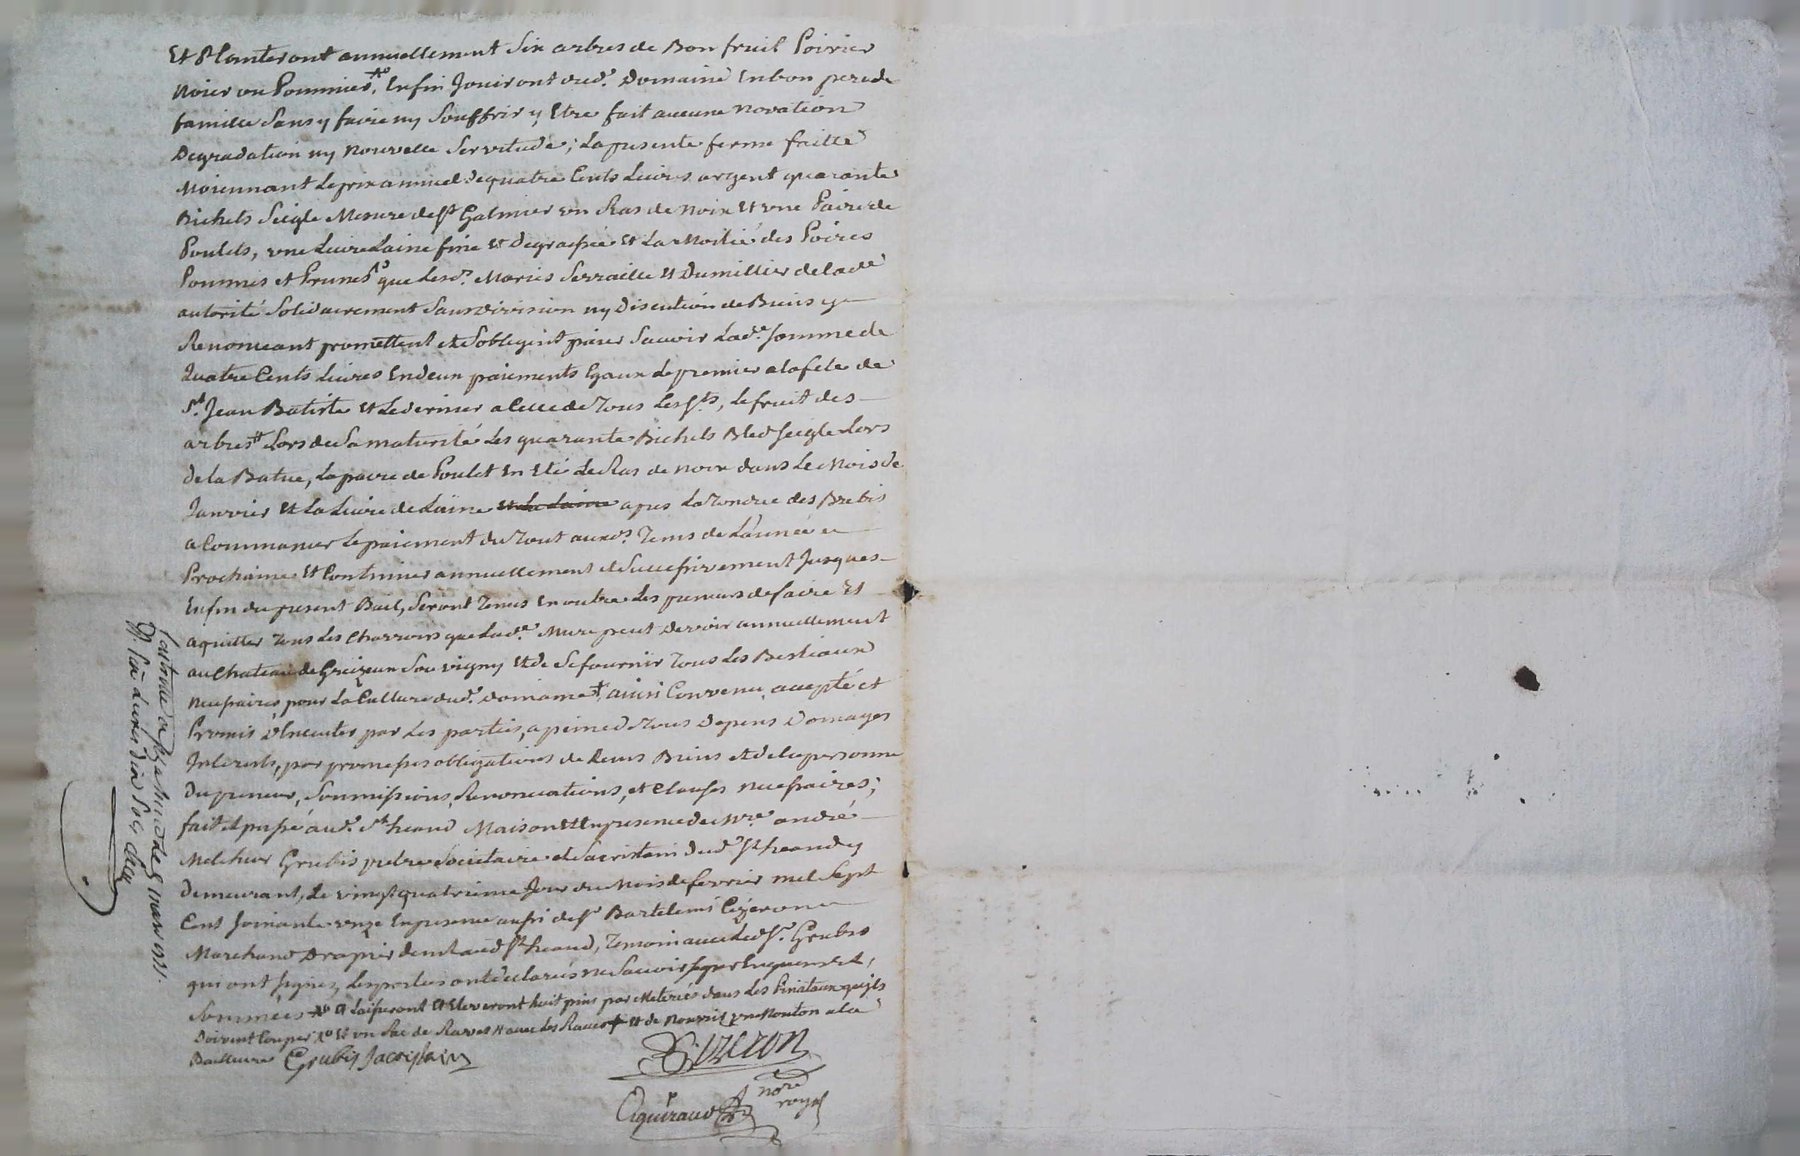 Et Planteront annuellement Six arbres de Bon fruit Poirier
Noier ou Pommier, Enfin Jouiront dud. Domaine En bon pere de
famille Sans y faire ny Souffrir y Etre fait aucune Novation
Degradation ny Nouvelle Servitude; La presente ferme faitte
Moiennant Le prix annuel de quatre Cents Livres argent quarante
Bichets Seigle Mesure de St Galmier un Ras de Noix Et une Paire de
Poulets, une Livre Laine fine Et degraissée Et La Moitié des Poires
Pommes et Prunes que Lesd. Mariés Serraille Et Dumillier de lade
autorité Solidairement Sans division ny Discution de Biens y
Renonceant promettent et Sobligent paier Scavoir Lade. Somme de
Quatre Cents Livres En deux paiements Egaux Le premier a la fete de
St. Jean Batiste Et Le dernier a Celle de Tous Les Sts, Le fruit des
arbres Lors de Sa maturité Les quarante Bichets Bled Seigle Lors
de la Batue, La paire de Poulet En Eté Le Ras de Noix dans Le Mois de
Janvier Et La Livre de Laine et La Laine apres La Tondue des Brebis
a Commancer Le paiement du Tout auxds. Tems de Lannée
Prochaine Et Continuer annuellement et Successivement Jusques
Enfin du present Bail, Seront Tenus En outre Les preneurs de faire Et
aquitter Tous Les Charrois que Lade. Mure peut Devoir annuellement
au Chateau de Sou vigny Et de Se fournir Tous Les Bestiaux
Necessaires pour La Culture dud. domaine ainsi Convenu accepté et
Promis Executer par Les parties, a peine de Tous Depens Domages
Interests, par promesses obligations de Leurs Biens Et de la personne
Du preneur, Soumissions, Renonciations, et Clauses Necessaires;
fait et passé aud. St heand Maison Et En presence de Mre andré
Melchior Grubis pretre Societaire et Sacristain dud St heand y
demeurant, Le vingt quatrieme Jour du Mois de fevrier mil Sept
Cent Soixante onze En presence aussi de Sr Bartelemi
Marchand Drapier demt aud St heand, Temoin avec Led Sr. Grubis
qui ont Signé, Les parties ont declarés ne Scavoir Signer Enquis et
Sommées et Laisseront Et Eleveront huit pins par Meterées dans Les Pinataux quils
Doivent Couper Et un Sac de Raves avec Les Raves Et de Nourrir une Mouton a la
Bailleure Grubis Sacristain
nore
royal